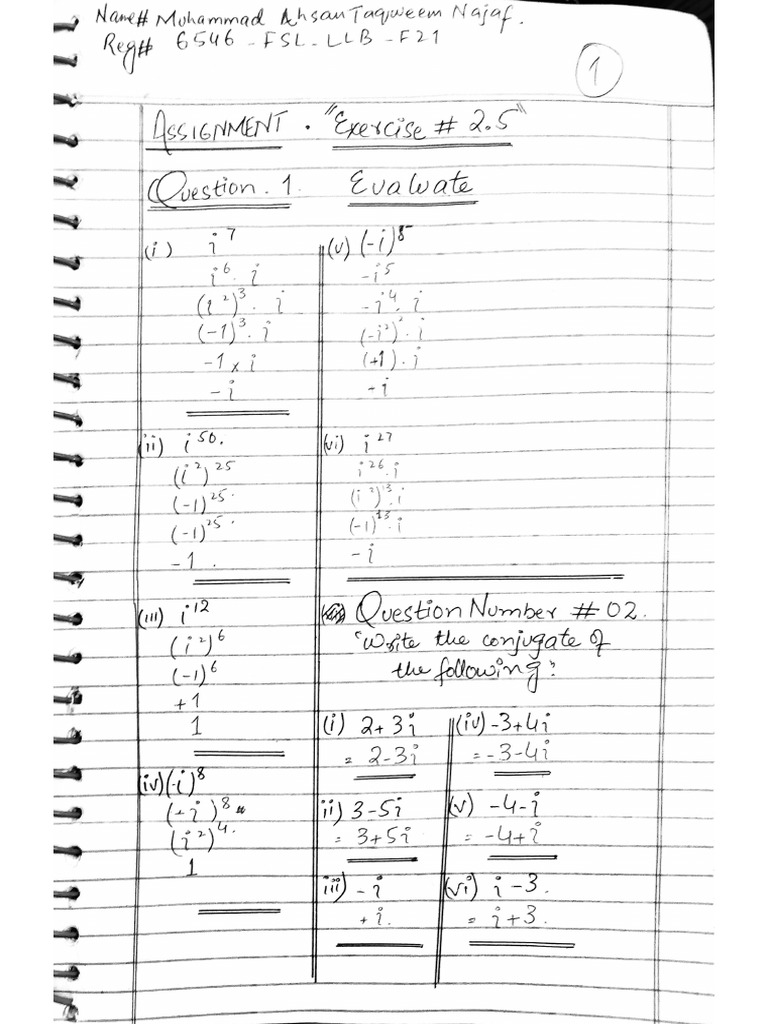 Name# Muhammad Ahsan Taqweem Najaf.
Reg# 6546-FSL-LLB-F21
1
ASSIGNMENT. "Exercise # 2.5"
Question.1. Evaluate
(i) i⁷
i⁶. i
(i²)³. i
(-1)³. i
-1 x i
-i
(ii) i⁵⁰.
(i²)²⁵
(-1)²⁵.
(-1)²⁵.
-1.
(iii) i¹²
(i²)⁶
(-1)⁶
+1
1
(iv) (-i)⁸
(+i)⁸
(i²)⁴.
1
(v) (-i)⁵
-i⁵
-i⁴. i
(-i²)². i
(+1). i
-i
(vi) i²⁷
i²⁶. i
(i²)¹³. i
(-1)¹³. i
-i
Question Number # 02.
"Write the conjugate of
the following"
(i) 2+3i
= 2-3i
ii) 3-5i
= 3+5i
iii) -i
+i.
(iv) -3+4i
= -3-4i
(v) -4-i
= -4+i
(vi) i-3.
= i+3.